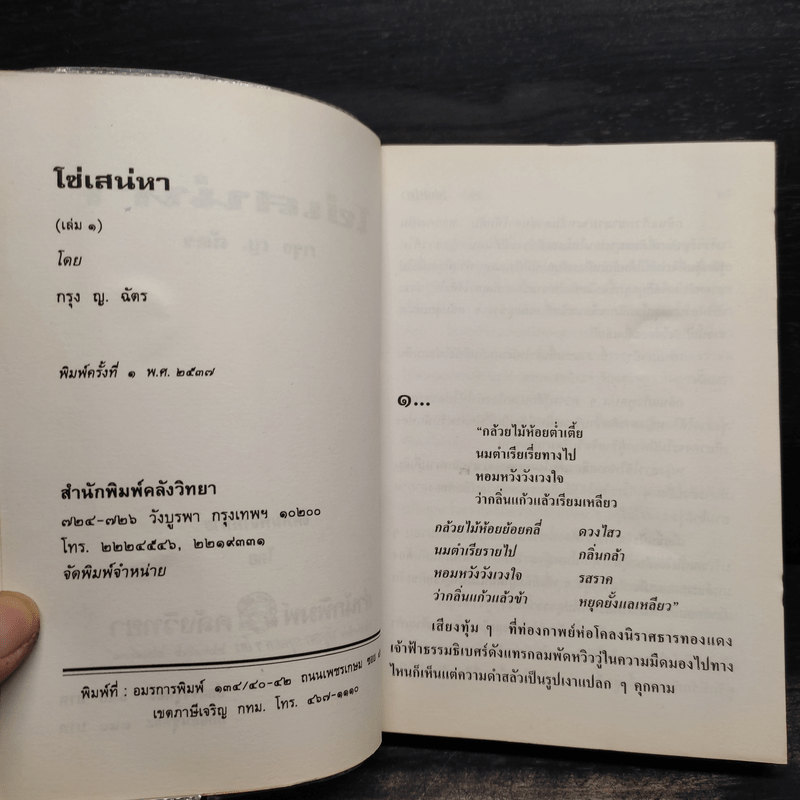 โซ่เสน่หา
(เล่ม ๑)
โดย
กรุง ญ. ฉัตร
พิมพ์ครั้งที่ ๑ พ.ศ. ๒๕๓๗
สำนักพิมพ์คลังวิทยา
๗๒๔-๗๒๖ วังบูรพา กรุงเทพฯ ๑๐๒๐๐
โทร. ๒๒๒๔๕๔๖, ๒๒๑๙๓๓๑
จัดพิมพ์จำหน่าย
พิมพ์ที่ : อมรการพิมพ์ ๑๓๔/๔๐-๔๒ ถนนเพชรเกษม ซอย
เขตภาษีเจริญ กทม. โทร. ๔๖๗-๑๑๑๐
๑...
"กล้วยไม้ห้อยต่ำเตี้ย
นมตำเรียเรี่ยทางไป
หอมหวังวังเวงใจ
ว่ากลิ่นแก้วแล้วเรียมเหลียว
กล้วยไม้ห้อยย้อยคลี่ ดวงไสว
นมตำเรียรายไป กลิ่นกล้า
หอมหวังวังเวงใจ รสราค
ว่ากลิ่นแก้วแล้วข้า หยุดยั้งแลเหลียว"
เสียงทุ้ม ๆ ที่ท่องกาพย์ห่อโคลงนิราศธารทองแดง
เจ้าฟ้าธรรมธิเบศร์ดังแทรกลมพัดหวิววู่ในความมืดมองไปทาง
ไหนก็เห็นแต่ความดำสลัวเป็นรูปเงาแปลก ๆ คุกคาม